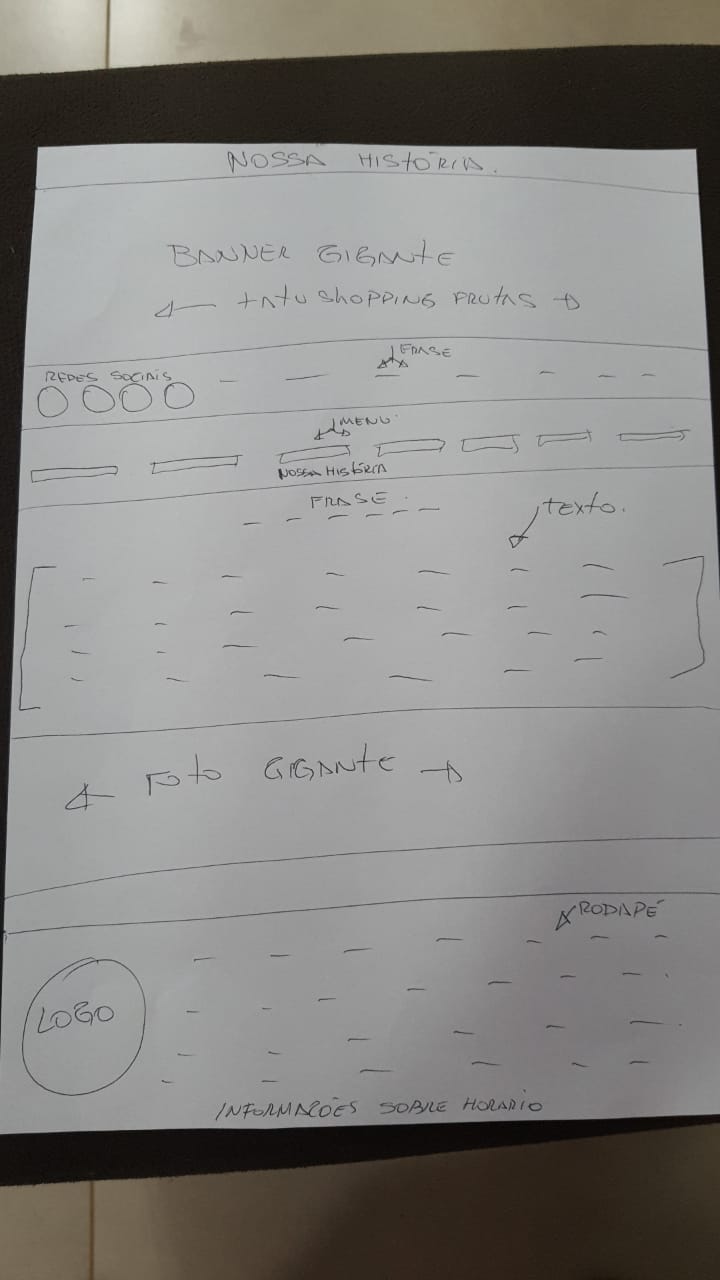 NOSSA HISTÓRIA.
BANNER GIGANTE
TATU SHOPPING FRUTAS
FRASE
REDES SOCIAIS
MENU
NOSSA HISTÓRIA
FRASE.
TEXTO.
FOTO GIGANTE
RODAPÉ
LOGO
INFORMAÇÕES SOBRE HORARIO